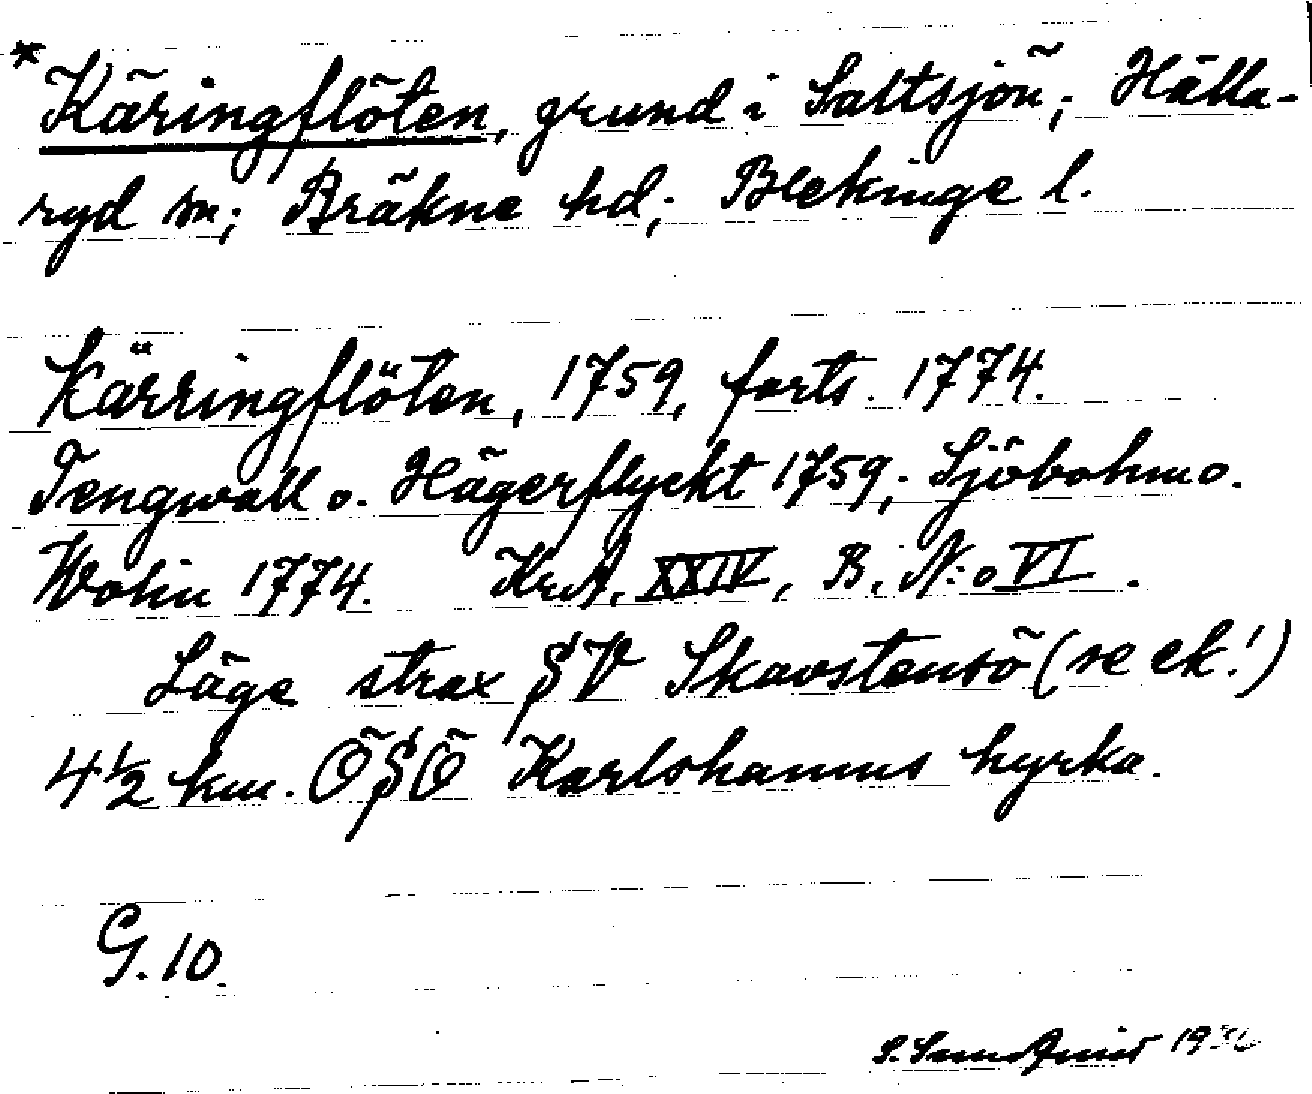 *Käringflöten, grund i Saltsjön; Hälla-
ryd sn; Bräkne hd; Blekinge l.
Kärringflöten, 1759, forts. 1774.
Tengwall o. Hägerflyckt 1759; Sjöbohm o.
Wohin 1774. KrA. XXIV, B. N:o VI.
Läge strax § V Skavstensö (se ek!)
4 1/2 km. Ö§Ö Karlshamns kyrka.
G. 10.
S. 19